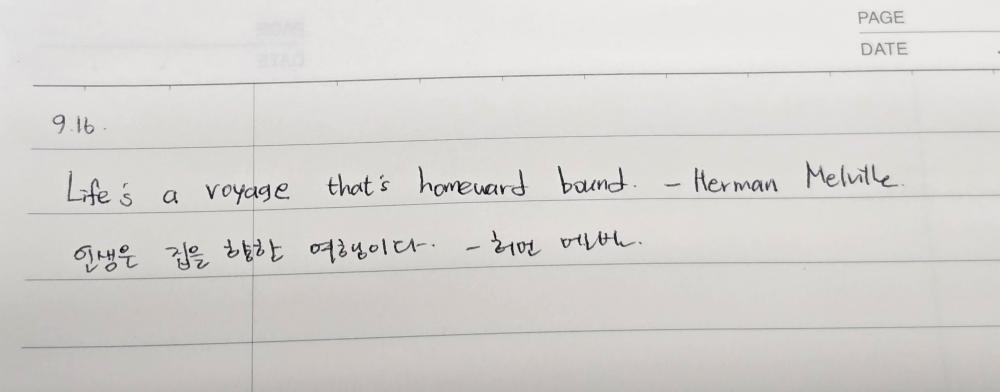 PAGE
DATE
9.16.
Life's a voyage that's homeward bound. - Herman Melville.
인생은 집을 향한 여행이다. - 허먼 멜빌.